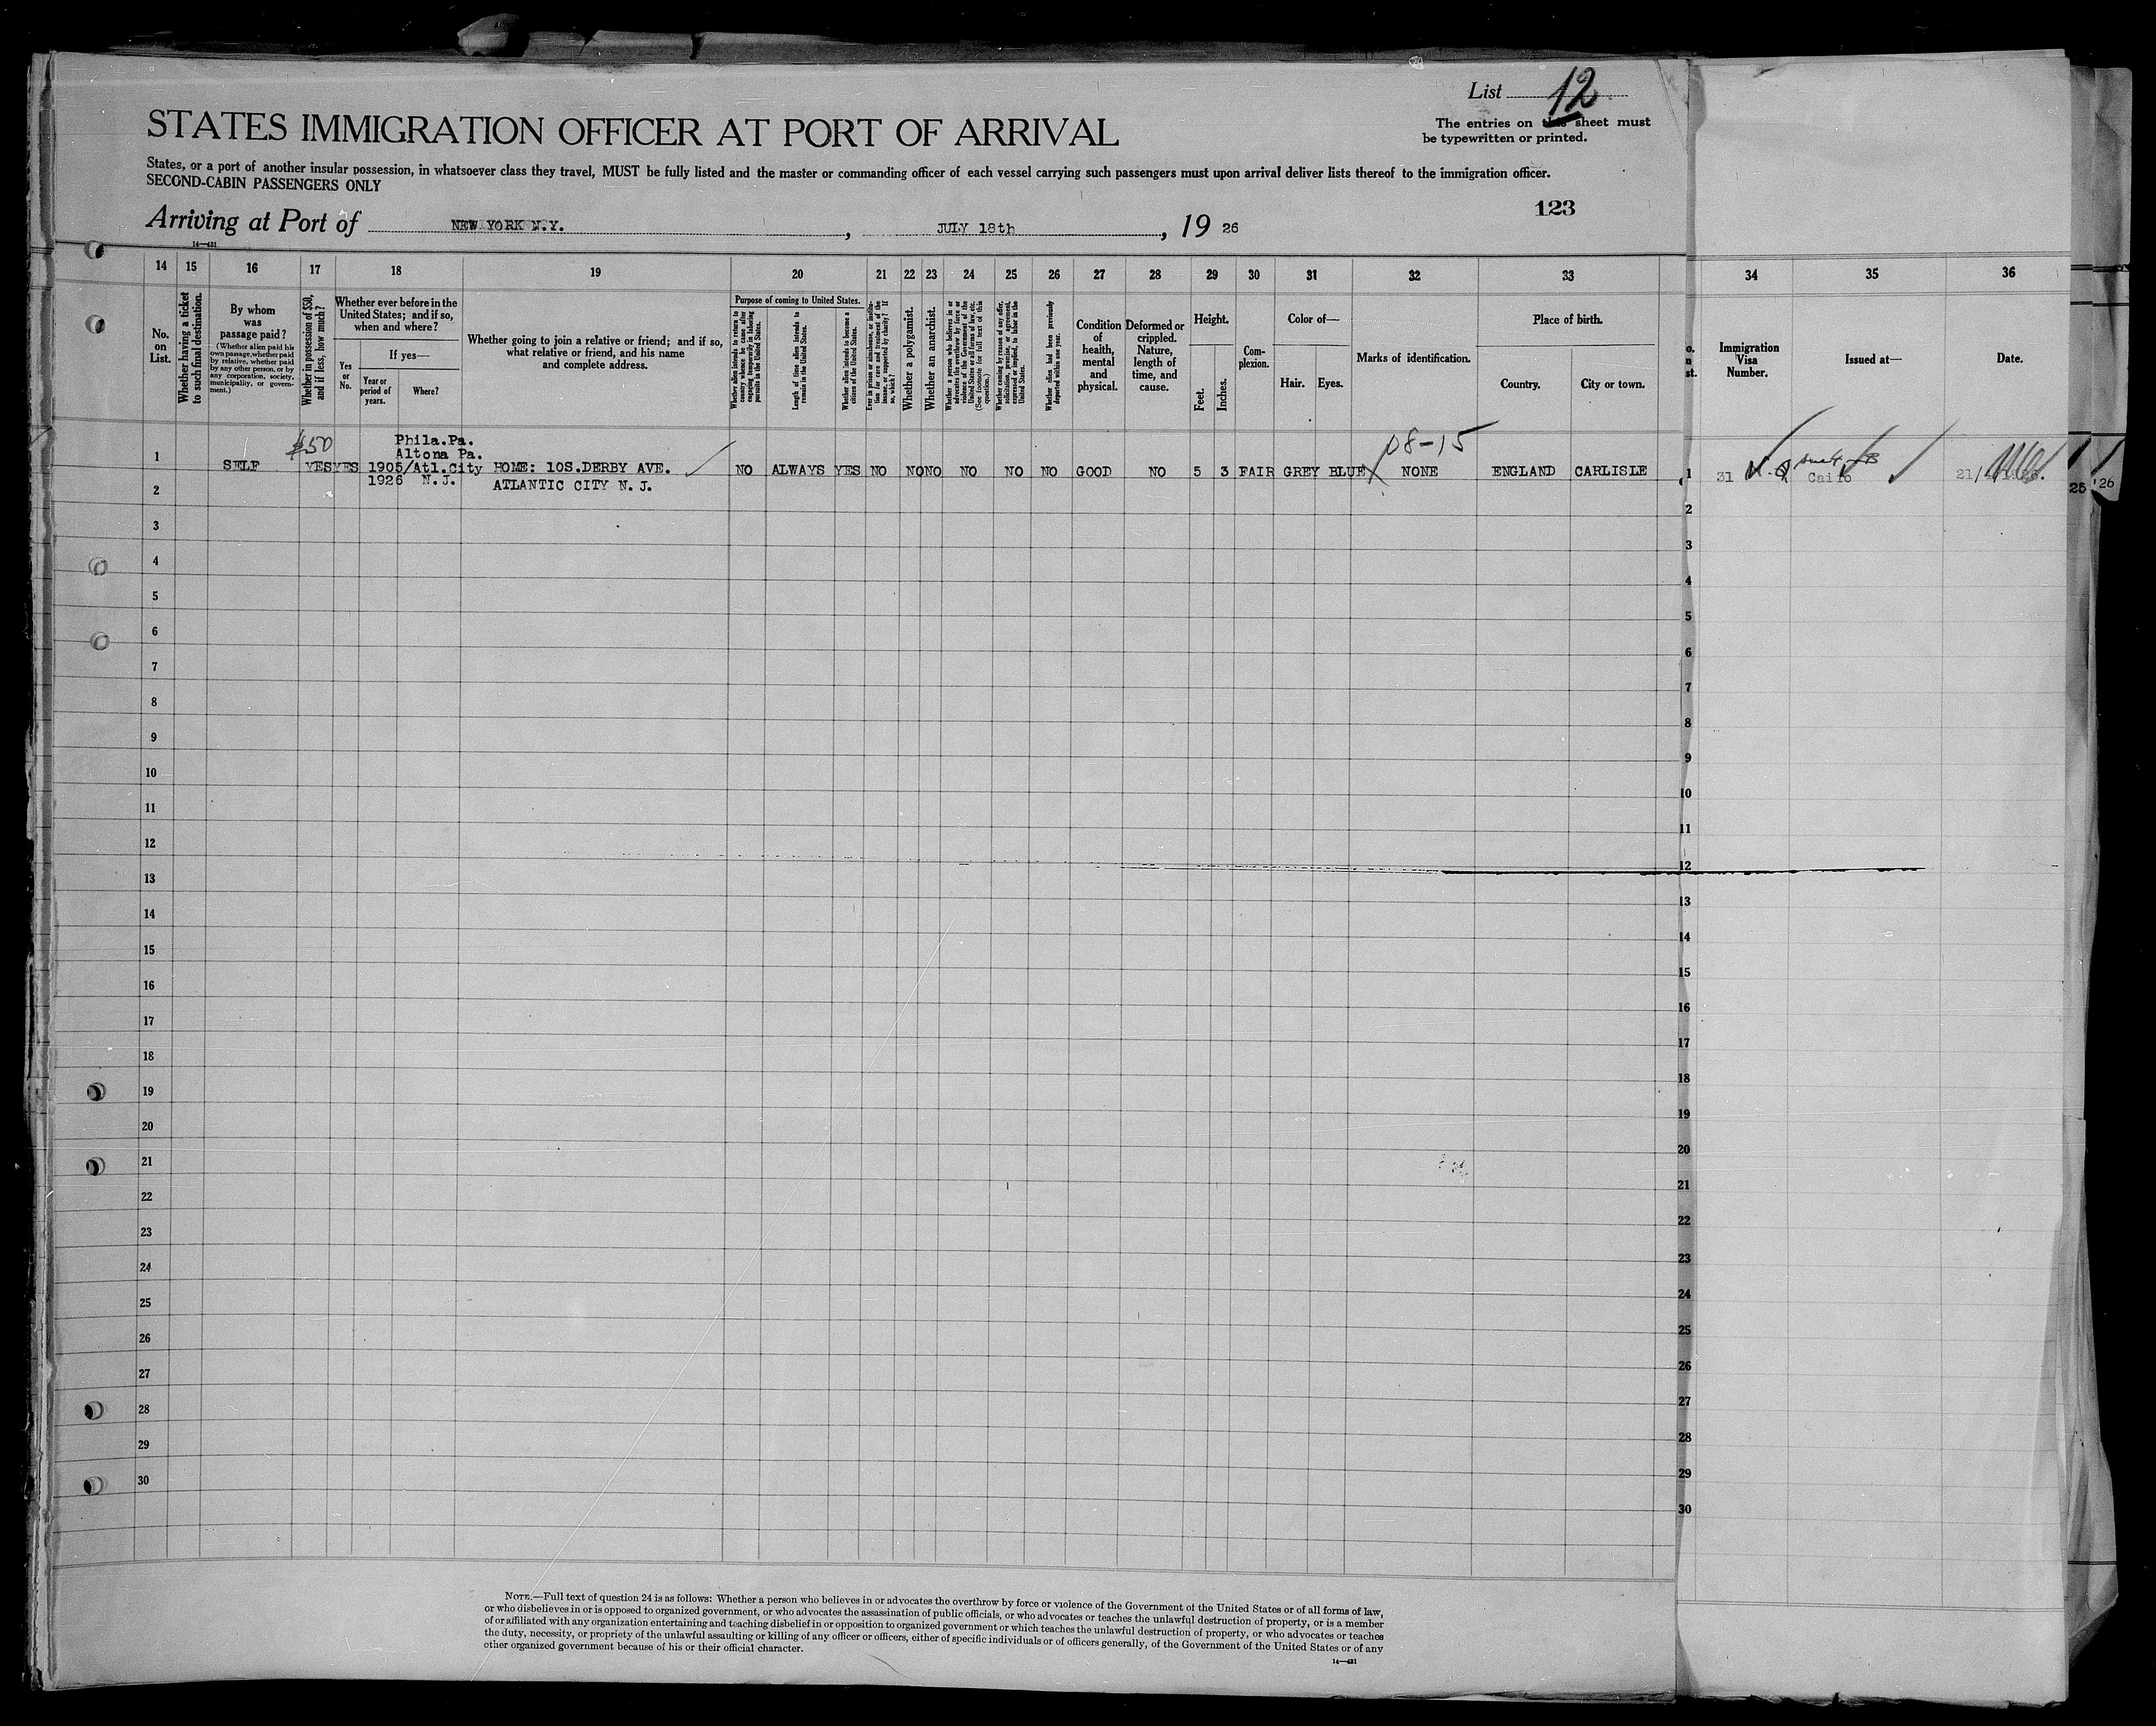 List 12
STATES IMMIGRATION OFFICER AT PORT OF ARRIVAL
The entries on this sheet must
be typewritten or printed.
States, or a port of another insular possession, in whatsoever class they travel, MUST be fully listed and the master or commanding officer of each vessel carrying such passengers must upon arrival deliver lists thereof to the immigration officer.
SECOND-CABIN PASSENGERS ONLY
123
Arriving at Port of NEW YORK N.Y. , JULY 18th , 19 26
14—431
14 15 16 17 18 19 20 21 22 23 24 25 26 27 28 29 30 31 32 33 34 35 36
No. on List.
Whether having a ticket to such final destination.
By whom was passage paid?
(Whether alien paid his own passage, whether paid by relative, whether paid by any other person, or by any corporation, society, municipality, or government.)
Whether in possession of $50, and if less, how much?
Whether ever before in the United States; and if so, when and where?
Yes or No.
If yes—
Year or period of years.
Where?
Whether going to join a relative or friend; and if so, what relative or friend, and his name and complete address.
Purpose of coming to United States.
Whether alien intends to return to country whence he came after engaging temporarily in laboring pursuits in the United States.
Length of time alien intends to remain in the United States.
Whether alien intends to become a citizen of the United States.
Ever in prison or almshouse, or institution for care and treatment of the insane, or supported by charity? If so, which?
Whether a polygamist.
Whether an anarchist.
Whether a person who believes in or advocates the overthrow by force or violence of the Government of the United States or all forms of law, etc. (See footnote for full text of this question.)
Whether coming by reason of any offer, solicitation, promise, or agreement, expressed or implied, to labor in the United States.
Whether alien had been previously deported within one year.
Condition of health, mental and physical.
Deformed or crippled. Nature, length of time, and cause.
Height.
Feet.
Inches.
Complexion.
Color of—
Hair. Eyes.
Marks of identification.
Place of birth.
Country. City or town.
Immigration Visa Number.
Issued at—
Date.
$50 Phila.Pa. 08-15
Altona Pa.
1 SELF YES YES 1905/Atl.City HOME: 10S.DERBY AVE. NO ALWAYS YES NO NO NO NO NO NO GOOD NO 5 3 FAIR GREY BLUE NONE ENGLAND CARLISLE 1 31 Cairo
1926 N.J. ATLANTIC CITY N.J.
25 '26
2 2
3 3
4 4
5 5
6 6
7 7
8 8
9 9
10 10
11 11
12 12
13 13
14 14
15 15
16 16
17 17
18 18
19 19
20 20
21 21
22 22
23 23
24 24
25 25
26 26
27 27
28 28
29 29
30 30
NOTE.—Full text of question 24 is as follows: Whether a person who believes in or advocates the overthrow by force or violence of the Government of the United States or of all forms of law,
or who disbelieves in or is opposed to organized government, or who advocates the assassination of public officials, or who advocates or teaches the unlawful destruction of property, or is a member
of or affiliated with any organization entertaining and teaching disbelief in or opposition to organized government or which teaches the unlawful destruction of property, or who advocates or teaches
the duty, necessity, or propriety of the unlawful assaulting or killing of any officer or officers, either of specific individuals or of officers generally, of the Government of the United States or of any
other organized government because of his or their official character.
14—431